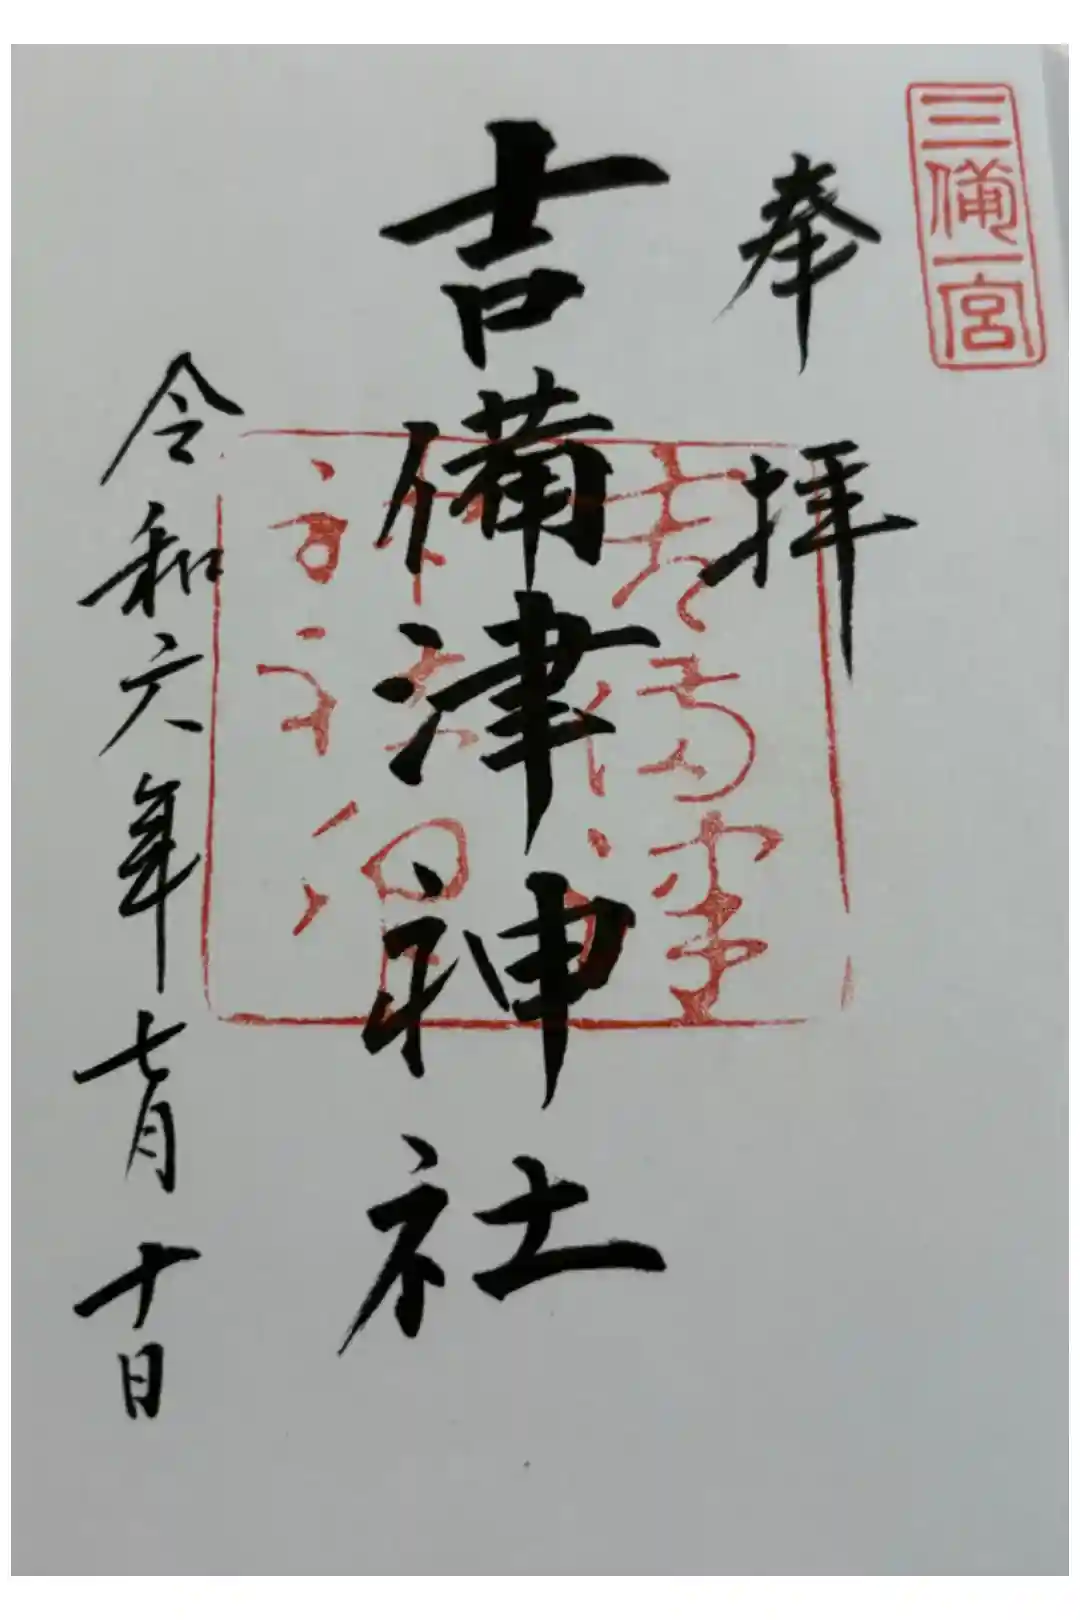 三備一宮
奉拝
吉備津神社
令和六年七月十日